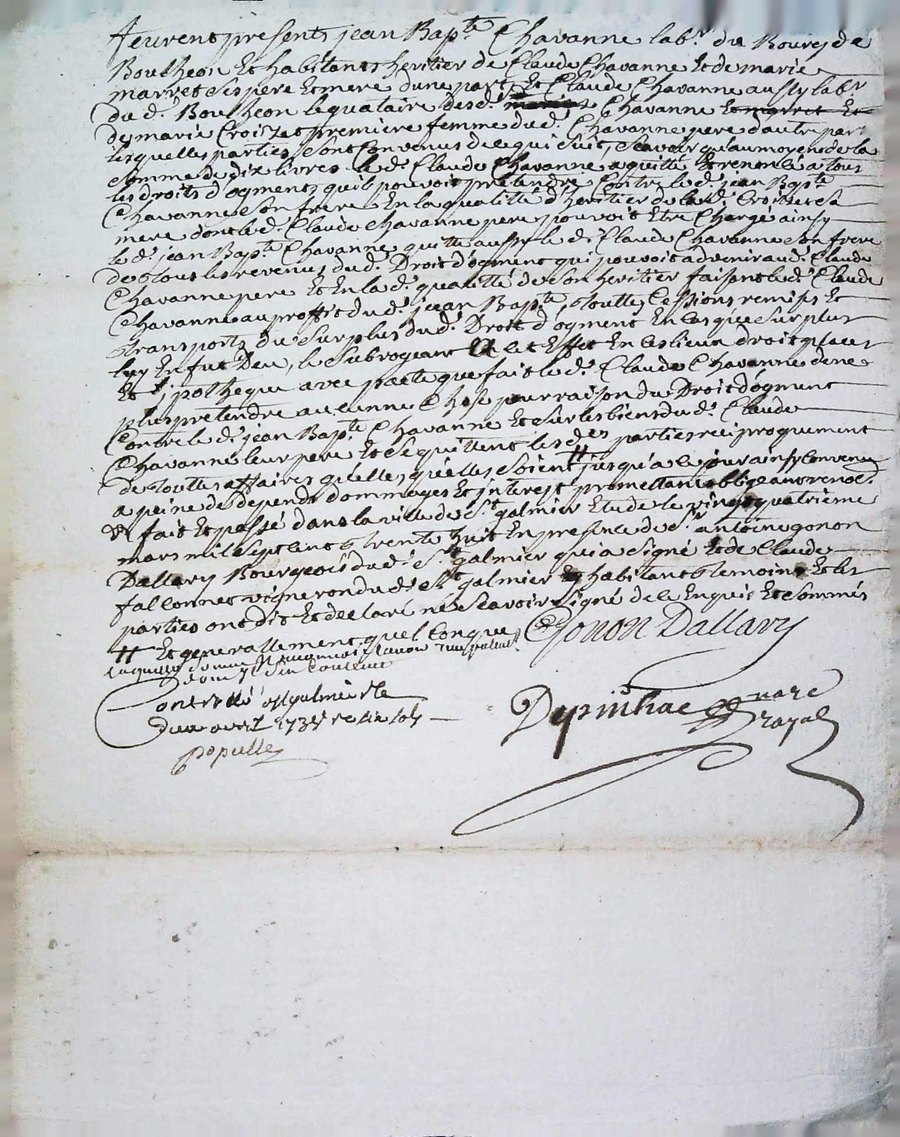 feurent presents jean Bap.te Chavanne lab.r du Bourg de
Boutheon Et habitant heritier de Claude Chavanne Et de marie
marret ses pere Et mere d'une part, Et Claude Chavanne aussy lab.r
du d. Boutheon Chavanne Et marret Et
de marie Croizet premiere femme dud. Chavanne pere d'autre part
lesquelles parties sont Convenus de ce qui suit, scavoir qu'au moyen de la
somme de dix livres le d. Claude Chavanne a quitté Et renoncé a tous
les droits d'ogments qu'il pouvoit pretendre Contre le d. jean Bap.te
Chavanne son frere En la qualitté d'heritier de lad. Croizet sa
mere dont le d. Claude Chavanne pere pouvoit Etre Chargé ainsy
le d. jean Bap.te Chavanne quitte aussy le d. Claude Chavanne son frere
de tous les revenus dud. Droit d'ogment qui pouvoit advenir aud. Claude
Chavanne pere Et En lad. qualitté de son heritier faisant led. Claude
Chavanne au proffit dud. jean Bap.te touttes Cessions remises Et
transports du surplus dud. Droit d'ogment En Cas que surplus
luy En fut Deu, le subrogeant a cet Effet En ses lieu droit place
Et ypotheque avec pacte que fait le d. Claude Chavanne de ne
plus pretendre aucunne Chose pour raison du Droit d'ogment
Contre le d. jean Bap.te Chavanne Et sur les biens du d. Claude
Chavanne leur pere Et se quittent les d.es parties reciproquement
de touttes affaires qu'elles qu'elles soient # jusqu'a ce jour ainsy Convenu
a peine de depends dommages Et interest promettant obligeant renoc.
fait Et passé dans la ville de S.t galmier Etude le vingt quatrieme
mars mil sept cent trente huit En presence de s.r antoine gonon
Dallary Bourgeois du d. S.t galmier qui a signé Et de Claude
fallonnet vigneron du d. S.t galmier Et habitant temoins Et les
parties ont dit Et declaré ne scavoir signé de ce Enquis Et sommés
# Et generallement quel Conque
Gonon Dallary
Controllé a S.t galmier le
deux avril 1738
Depinhac nore
Royal
populle